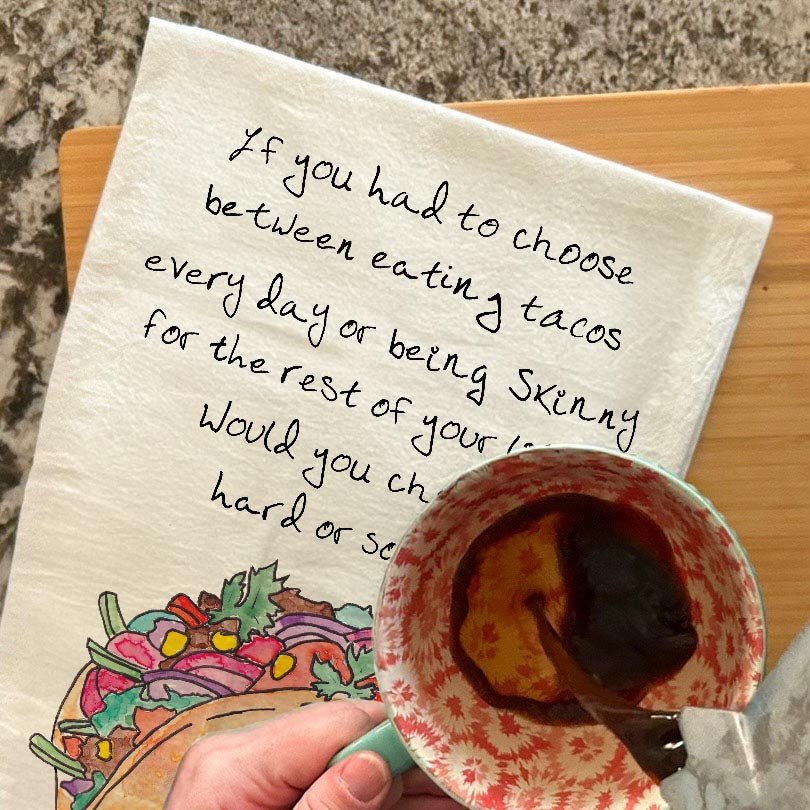 If you had to choose
between eating tacos
every day or being Skinny
for the rest of your
Would you
hard or